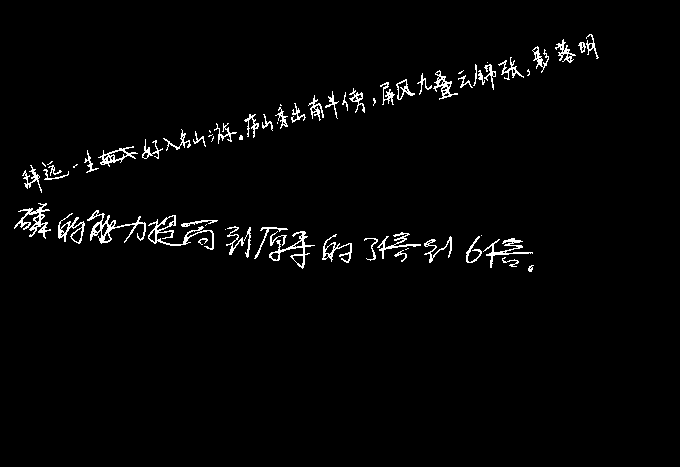 辞远一生好入名山游。庐山秀出南斗傍，屏风九叠云锦张，影落明
磷的能力提高到原来的3倍到6倍。